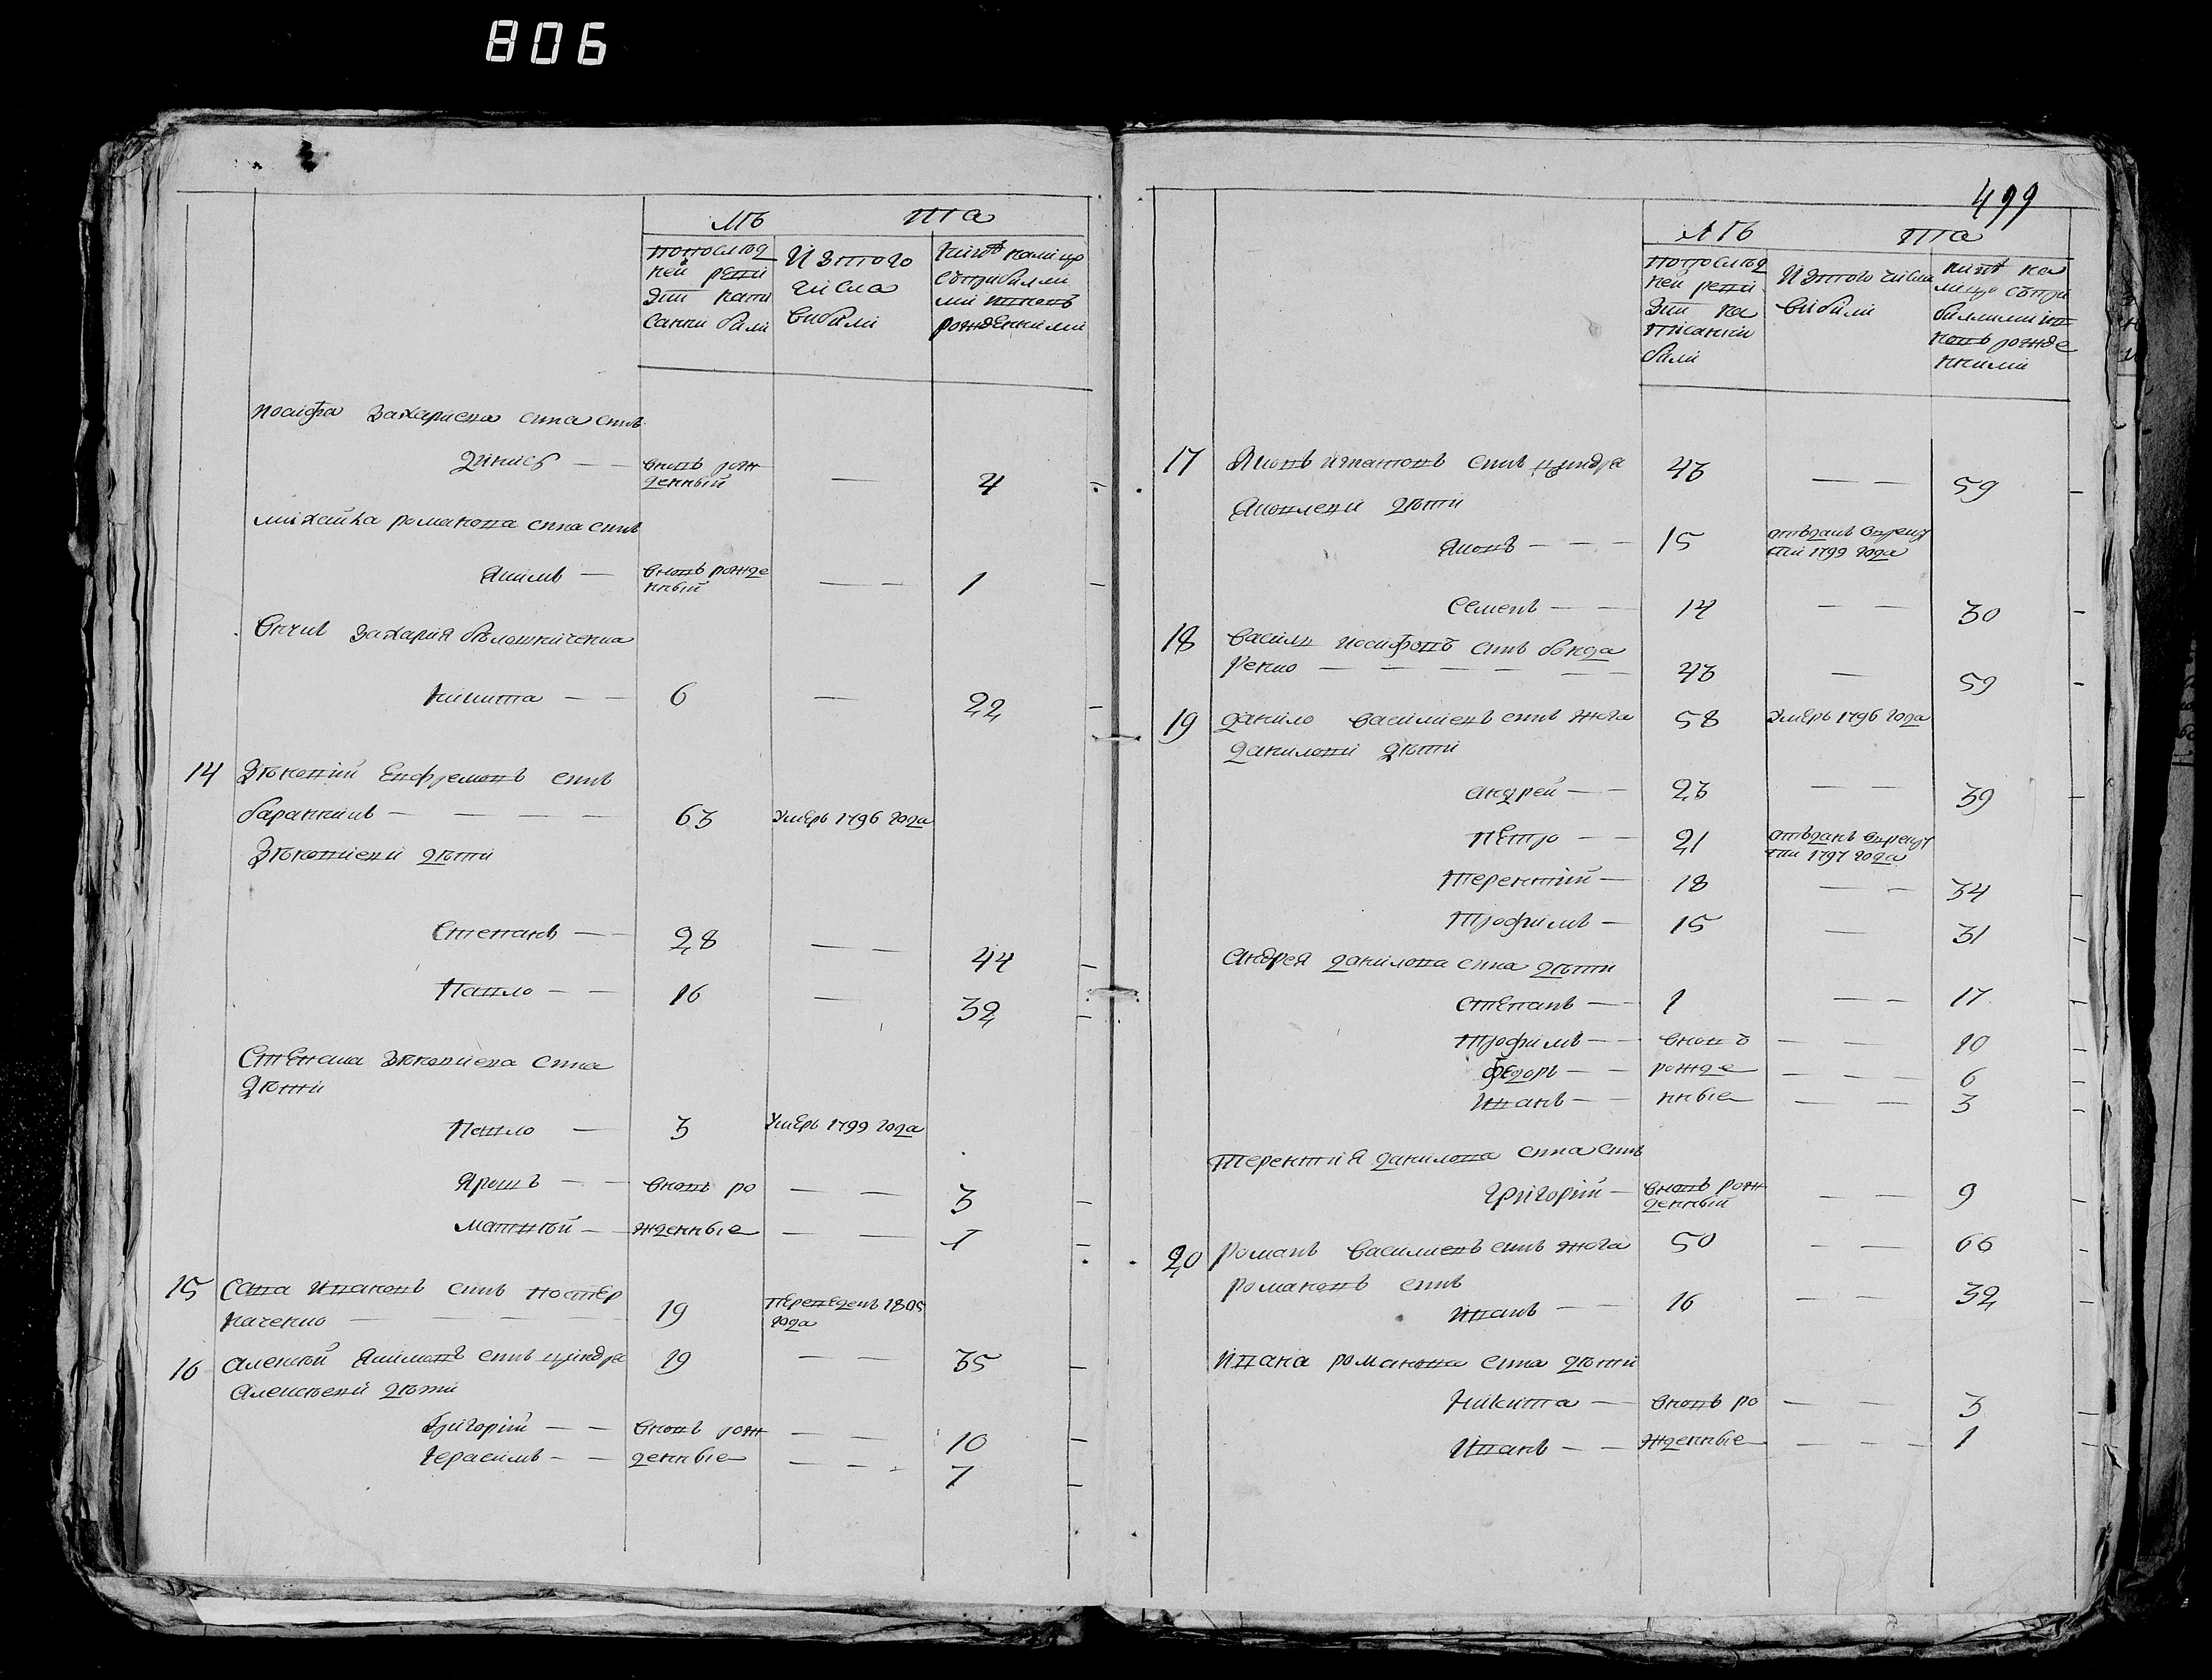 806
Лѣ та
Попослѣд ней реви зіи напи санни били
Изтого числа выбили
Нинѣ налицо съприбилми мы вновь рожденними
Иосифа Захариева сина синъ
Динисъ — — вновь рож — 4
денный
михайла романова сина синъ
Якимъ — вновь рожде — — 1
нный
Внукъ Захария
никита — — 6 — 22
14 Зѣновій Евфремовъ синъ
баранникъ — — — — 63 Умеръ 1796 года
Зѣновіеви дѣти
Степанъ — — 28 — — 44
Павло — — 16 — 32
Степана Зѣновіева сина
дѣти
Павло — 3 Умеръ 1799 года
Ярошъ — — вновь ро — — 3
матвѣй — жденные — — 1
15 Сава Ивановъ синъ
— — — — 19 переведенъ 1805
года
16 Алексѣй Якимовъ синъ циндра 19 — — 35
Алексѣеви дѣти
Григорій — — вновь рож — — 10
Герасимъ — — денные — — — 7
499
Лѣ та
Попослѣд ней реви зіи на писанни били
Изтого числа выбили
нинѣ на лицо съпри билмими вновь рожде нними
17 Яковъ Игнатовъ синъ циндра 43 — — 59
Яковлеви дѣти
Яковъ — — — 15 отъданъ врекру
ти 1799 года
Семенъ — — 14 — — 30
18 Василь иосифовъ синъ бонда
ренко — — — — — — 43 — 59
19 Данило василиевъ синъ жога 58 умеръ 1796 года
Данилови дѣти
Андрей — — 23 — — 39
Петро — — 21 отъданъ врекру
ти 1797 года
Терентій — 18 — — 34
Трофимъ — 15 — 31
Андрея данилова сина дѣти
Степанъ — — 1 — — 17
Трофимъ — — вновъ — — — 10
Федоръ — — рожде — — — 6
Иванъ — — нные — — 3
Терентия данилова сина синъ
Григорій — вновь рож — — 9
денный
20 Романъ василиевъ синъ жога 50 — — 66
романовъ синъ
Иванъ — — 16 — — 32
Ивана романова сина дѣти
Никита — вновь ро — — 3
Иванъ — — жденные — — — 1